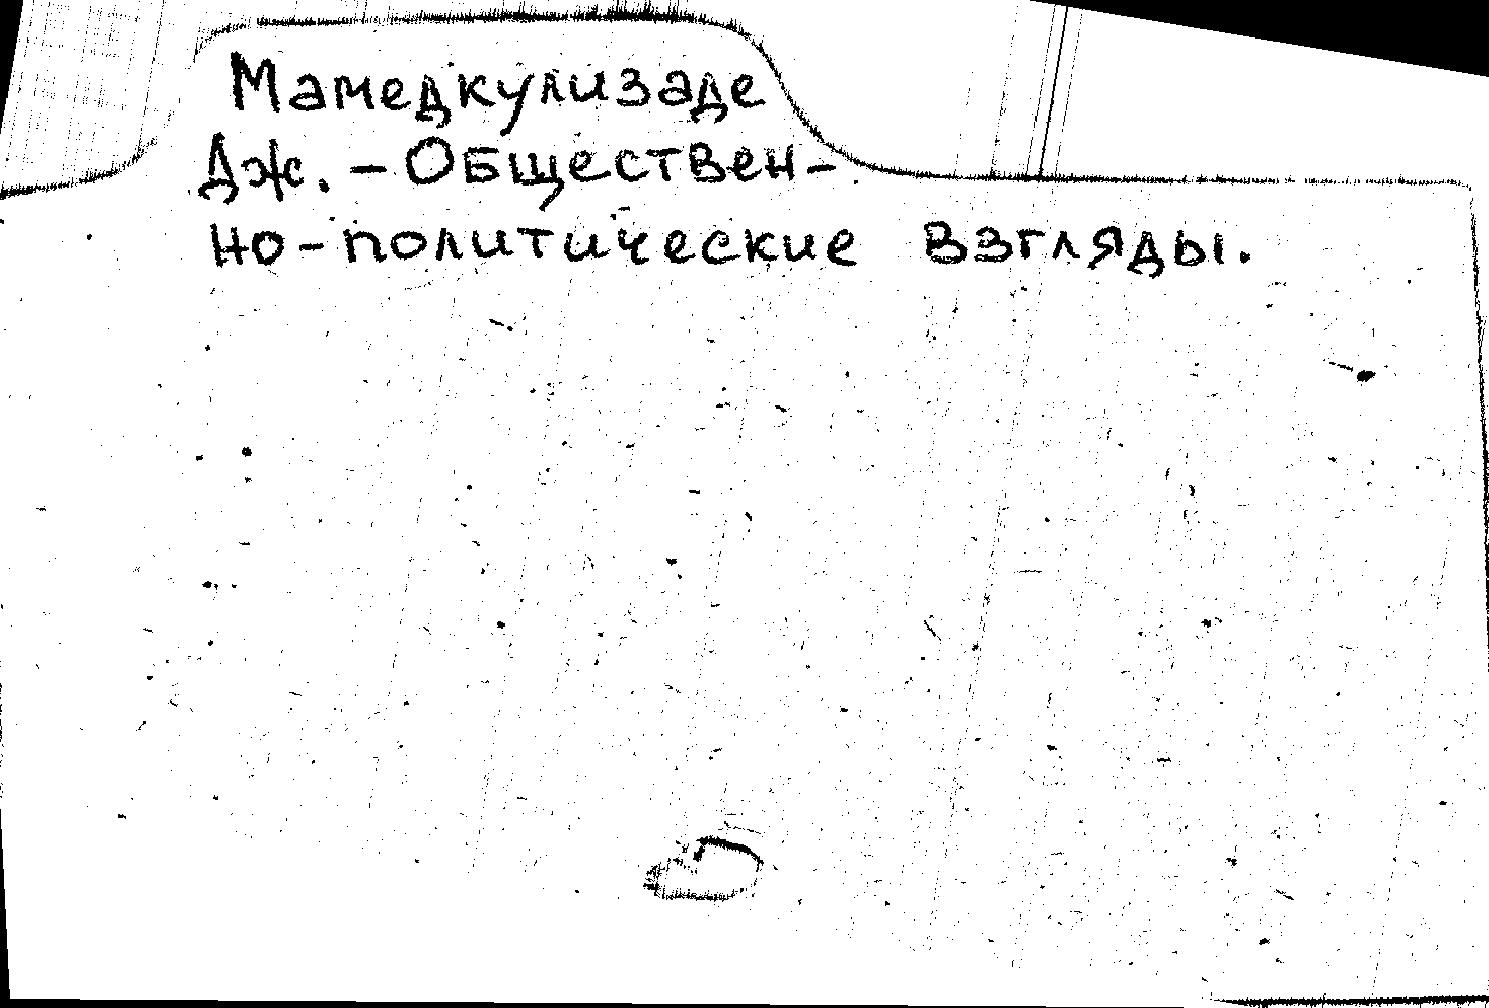 Мамедкулизаде
Дж. - Обществен-
но-политические взгляды.